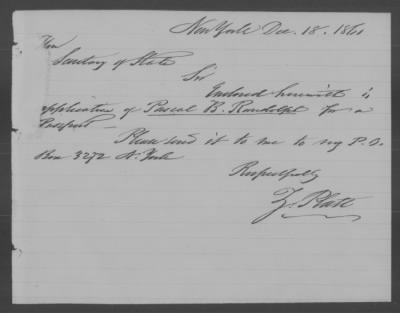 New York Dec. 18. 1861
Hon
Secretary of State
Sir
Enclosed herewith is
application of Pascal B. Randolph for a
Passport —
Please send it to me to my P.O.
Box 3272 N. York
Respectfully
Z. Platt